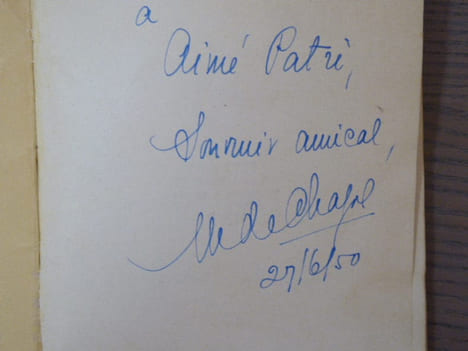 à
Aimé Patri,
Souvenir amical,
de
27/6/50